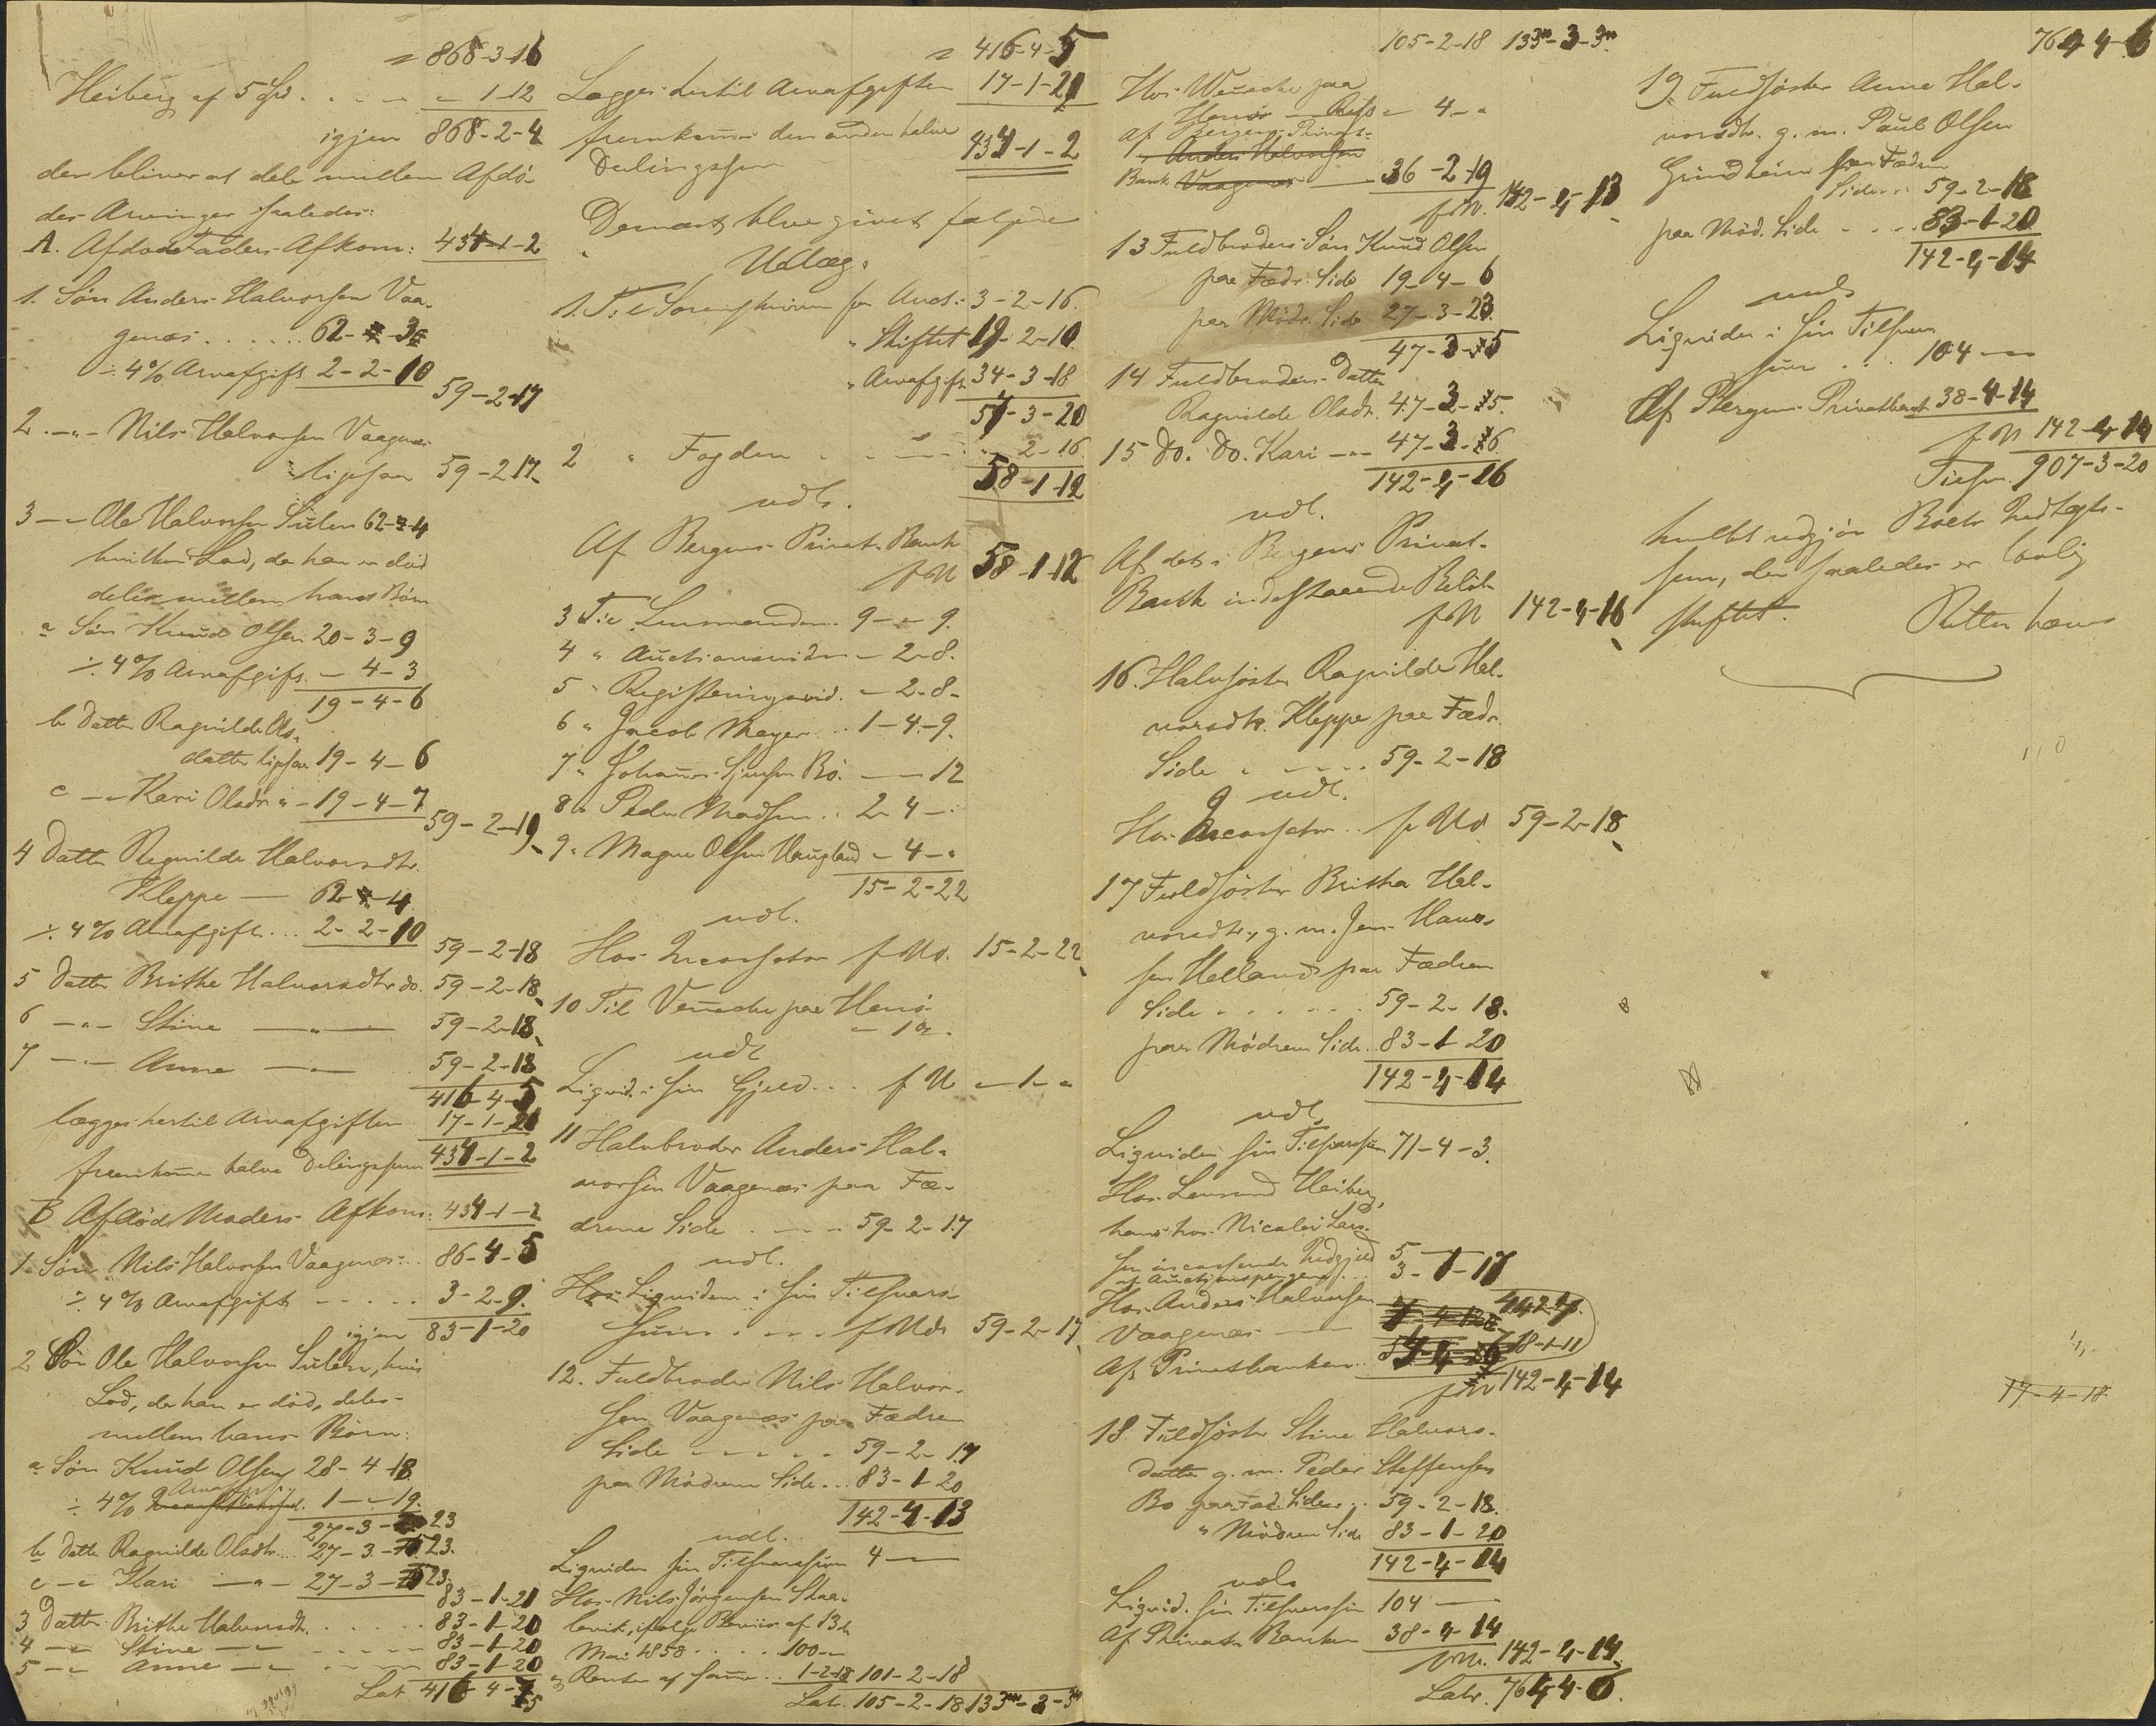 = 868-3-16
Heiberg af 5 Spd. . . . - 1-12
igjen 868-2-4
der bliver at dele mellem Afdø-
des Arvinger saaledes:
A. Afdøde Faders Afkom: 434-1-2
1. Søn Anders Halvorsen Vaa-
genæs . . . . . 62- -3
÷ 4% Arveafgift 2-2-10
59-2-17
2. -"- Nils Halvorsen Vaagenæs
ligesaa 59-2-17
3 -"- Ole Halvorsen Sulen 62- -4
hvilken Lod, da han er död
deles mellem hans Börn
a Sön Knud Olsen 20-3-9
÷ 4% Arveafgift - 4-3
19-4-6
b Datter Ragnilde Ols-
datter ligesaa 19-4-6
c -"- Kari Olsdr " - 19-4-7
59-2-19
4 Datter Ragnilde Halvorsdtr.
Kleppe - 62- -4
÷ 4% Arveafgift... 2-2-10
59-2-18
5 Datter Brithe Halvorsdtr do. 59-2-18
6 -"- Stine -"- 59-2-18
7 -"- Anne -"- 59-2-18
416-4-5
lægges hertil Arveafgiften 17-1-21
fremkommer halve Delingssum 434-1-2
B Afdödes Moders Afkom: 434-1-2
1. Sön Nils Halvorsen Vaagenæs... 86-4-5
÷ 4% Arveafgift . . . . . 3-2-9
igjen 83-1-20
2 Sön Ole Halvorsen Sulen, hvis
Lod, da han er död, deles
mellem hans Börn:
a Sön Knud Olsen 28-4-18
÷ 4% Arveafgift. 1-"-19
27-3-23
b Datter Ragnilde Olsdtr... 27-3-23.
c -"- Kari -"- 27-3-23
83-1-21
3 Datter Brithe Halvorsdtr. . . . . 83-1-20
4 -"- Stine -"- . . . 83-1-20
5 -"- Anne -"- . . . 83-1-20
Lat 416-4-5
= 416-4-5
Lægges hertil Arveafgiften 17-1-21
fremkommer den anden halve
Delingssum 434-1-2
Dernæst blev givet følgende
Udlæg:
1. Til Sorenskriveren for Auct: 3-2-16
" Skiftet 19-2-10
" Arveafgift 34-3-18
57-3-20
2 " Fogden . . . . . 2-16
58-1-12
udl.
Af Bergens Privat Bank
58-1-12
3 Til Lensmanden. 9-"-9.
4 " Auctionsvidn - 2-8.
5 " Registeringsvid. - 2-8-
6 " Jacob Meyer... 1-4-9.
7 " Johannes Bö. - - 12
8 " Peder Madsen.. 2-4-
9 " Magne Olsen Haugland - 4-"
15-2-22
udl.
Hos Incassator 15-2-22
10 Til Wenecke paa Henö
- 1 -
udl
Liqvid. i sin Gjeld... - 1 - "
11 Halvbroder Anders Hal-
vorsen Vaagenæs paa Fæ-
drene Side . . . . 59-2-17
udl.
Liqviderer i sin Tilsvars-
sum . . . . 59-2-17
12. Fuldbroder Nils Halvor-
sen Vaagenæs paa Fædren
Side - - - - 59-2-17
paa Mödrene Side... 83-1-20
142-4-13
udl.
Liqviderer sin Tilsvarssum 4 - -
Hos Nils Jörgensen Skaa-
levik, ifölge Beviis af 13de
Mai 1858 . . . . 100-"-
Renter af samme .. 1-2-18 101-2-18
Lat. 105-2-18 133-3-3
105-2-18 133-3-3
Hos Wenecke paa
Henö - Rest - 4-"
Af Bergens Privat-
Anders Halvorsen
Bank Vaagenæs - 36-2-19
142-4-13
13 Fuldbroders Sön Knud Olsen
paa Fædr. Side 19-4-6
paa Mödr. Side 27-3-23
47-3-5
14 Fuldbroders Datter
Ragnilde Olsdr. 47-3-5.
15 Do. Do. Kari -"- 47-3-6
142-4-16
udl.
Af det i Bergens Privat-
Bank indestaaende Belöb
142-4-16
16. Halvsöster Ragnilde Hal-
vorsdtr. Kleppe paa Fædr.
Side . . . . . 59-2-18
udl.
Hos Incassator.. 59-2-18
17 Fuldsöster Britha Hal-
vorsdtr, g. m. Jens Hans-
sen Helland paa Fædren
Side . . . . . . 59-2-18.
paa Mödren Side.. 83-1-20
142-4-14
udl.
Liqviderer sin Tilsvarssum 71-4-3.
Hos Lensmand Heiberg,
hans hos Nicolai Lars-
sen incasserende
af Auctionspengene... 53-1-17
Hos Anders Halvorsen
Vaagenæs - 18-1-11
Af Privatbanken..
142-4-14
18 Fuldsöster Stine Halvors-
datter g. m. Peder Steffensen
Bö paa Fad. Side .. 59-2-18.
" Mödren Side 83-1-20
142-4-14
udl.
Liqvid. sin Tilsvarssum 104 - -
Af Privat Banken 38-4-14
142-4-14
Latr. 764-4-6.
764-4-6
19. Fuldsöster Anne Hal-
vorsdtr. g. m. Paul Olsen
Grindheim paa Fædren
Side 59-2-18
paa Möd. Side . . . . 83-1-20
142-4-14
udl.
Liqvider i sin Tilsvars
sum . . . 104 - -
Af Bergens Privatbank 38-4-14
142-4-14
907-3-20
hvilket udgjör Boets Indtægts-
sum, der saaledes er lovlig
skiftet.
17-4-18